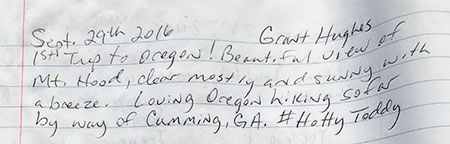 Sept. 29th 2016 Grant Hughes
1st Trip to Oregon! Beautiful view of
Mt. Hood, clear mostly and sunny with
a breeze. Loving Oregon hiking so far
by way of Cumming, GA. #Hotty Toddy